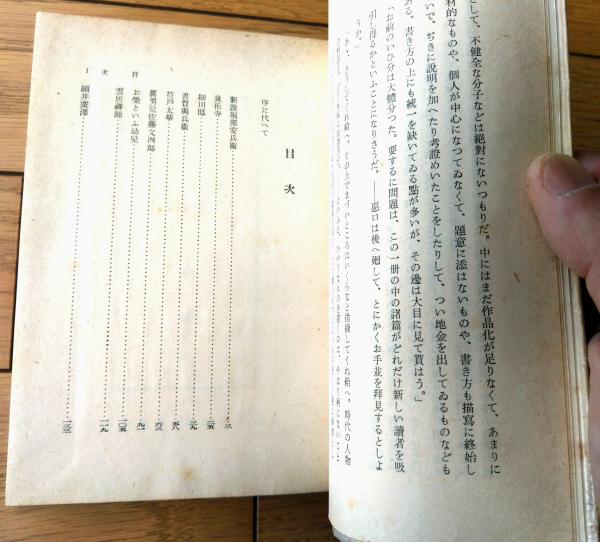 として、不健全な分子などは絶對にないつもりだ。中にはまだ作品化が足りなくて、あまりに
材的なものや、個人が中心になつてゐなくて、題意に添はないものや、書き方も描寫に終始し
いで、ぢきに說明を加へたり考證めいたことをしたりして、つい地金を出してゐるものなども
ある。書き方の上にも統一を缺いてゐる點が多いが、その邊は大目に見て貰はう。」
「お前のいひ分は大體分つた。要するに問題は、この一册の中の諸篇がどれだけ新しい讀者を吸
引し得るかといふことになりさうだ。――惡口は後へ廻して、とにかくお手並を拜見するとしよ
うか。」
目次
序に代へて
新說堀部安兵衞……三
泉岳寺……二五
細川邸……三九
書賀與兵衞……五八
荳戶太華……六三
眞男兒佐藤文四郎……九一
お榮といふ幼兒……一〇五
雲居禪師……一一九
細井廣澤……一三三
目次
1